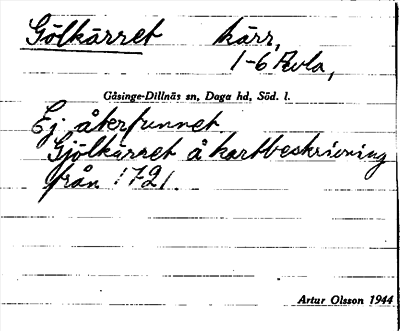 Gölkärret kärr,
1-6 Avla,
Gåsinge-Dillnäs sn, Daga hd, Söd. l.
Ej återfunnet.
Gjölkärret å kartbeskrivning
från 1721.
Artur Olsson 1944